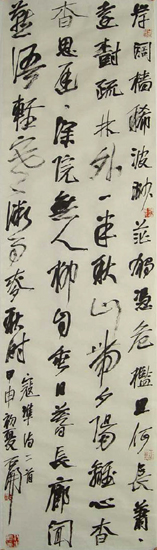 岸闊檣稀波渺茫獨憑危檻思何長蕭々
遠樹疏林外一半秋山帶夕陽離心杳
杳思遲々深院無人柳自垂日暮長廊聞
燕語輕寒微雨麥秋時
寇準詩二首
甲申初夏